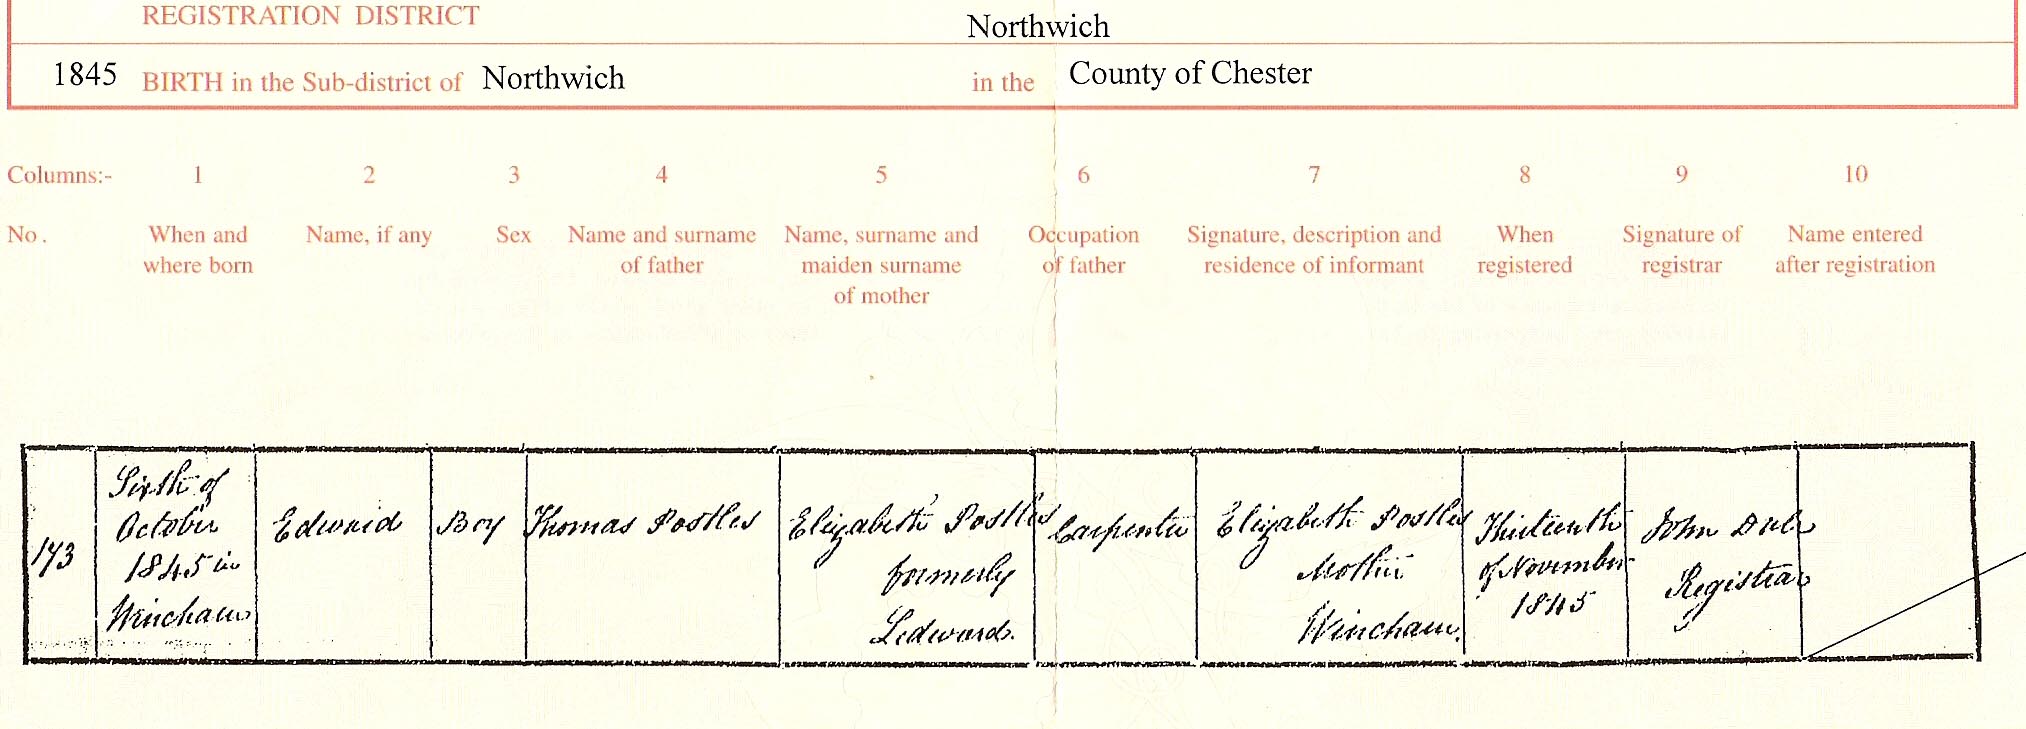 REGISTRATION DISTRICT Northwich
1845 BIRTH in the Sub-district of Northwich in the County of Chester
Columns:- 1 2 3 4 5 6 7 8 9 10
No. When and where born Name, if any Sex Name and surname of father Name, surname and maiden surname of mother Occupation of father Signature, description and residence of informant When registered Signature of registrar Name entered after registration
173
Sixth of
October
1845 in
Wincham
Edward
Boy
Thomas Postles
Elizabeth Postles
formerly
Ledward.
Carpenter
Elizabeth Postles
Mother
Wincham.
Thirteenth
of November
1845
John
Registrar